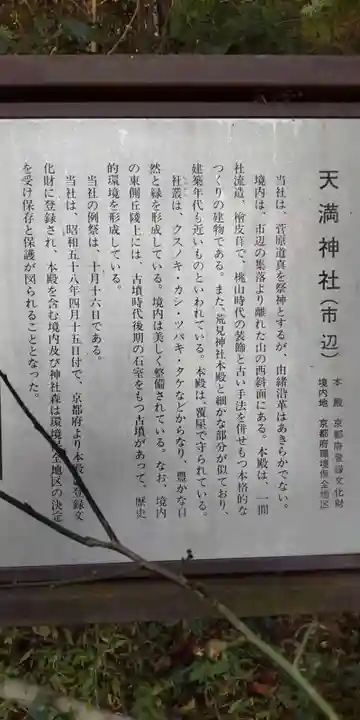 天満神社(市辺)
本殿 京都府登録文化財
境内地 京都府環境保全地区
当社は、菅原道真を祭神とするが、由緒沿革はあきらかでない。
境内は、市辺の集落より離れた山の西斜面にある。本殿は、一間
社流造、檜皮葺で、桃山時代の装飾と古い手法を併せもつ本格的な
つくりの建物である。また、荒見神社本殿と細かな部分が似ており、
建築年代も近いものといわれている。本殿は、覆屋で守られている。
社叢は、クスノキ・カシ・ツバキ・タケなどからなり、豊かな自
然と緑を形成している。境内は美しく整備されている。なお、境内
の東側丘陵上には、古墳時代後期の石室をもつ古墳があって、歴史
的環境を形成している。
当社の例祭は、十月十六日である。
当社は、昭和五十八年四月十五日付で、京都府より本殿が登録文
化財に登録され、本殿を含む境内及び神社森は環境保全地区の決定
を受け保存と保護が図られることとなった。